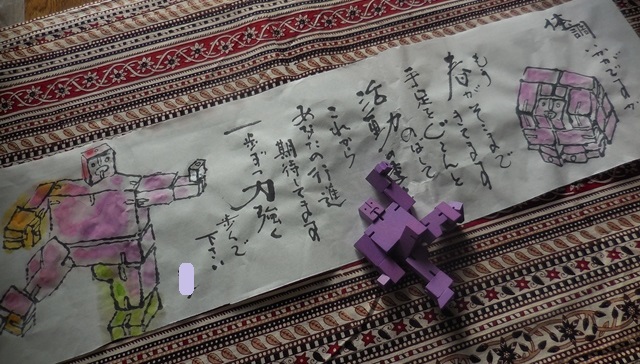 体調いかがですか
もう
春がそこまで
きてます
手足をぐ～んと
のばして
活動
これから
あなたの行進
期待してます
一歩ずつ力強く
歩んで
下さい